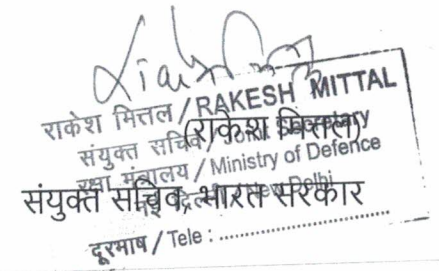 राकेश मित्तल / RAKESH MITTAL
संयुक्त सचिव / Joint Secretary
(राकेश मित्तल)
रक्षा मंत्रालय / Ministry of Defence
संयुक्त सचिव, भारत सरकार
नई दिल्ली / New Delhi
दूरभाष / Tele : ..............................